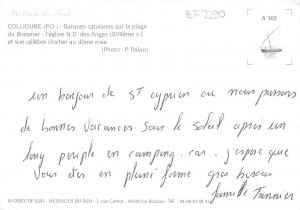 Message du Sud...
COLLIOURE (P.O.) - Barques catalanes sur la plage
du Boramar - l'église N.D. des Anges (XVIIème s.)
et son célèbre clocher au dôme rose.
(Photo - P. Palau)
BF 2290
A 302
un bonjour de St cyprien ou nous passons
de bonnes vacances. Sous le soleil après un
long périple en camping. car. j'espère que
vous êtes en pleine forme gros bisous
famille Tannier
© OBJECTIF SUD - MESSAGES DU SUD - 2, rue Carnot - 66160 Le Boulou - Tél.